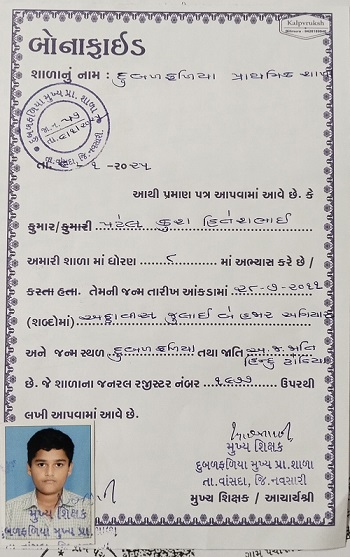 Kalpvruksh
બોનાફાઈડ
શાળાનું નામ : દુબળફળિયા પ્રાથમિક શાળા
દુબળફળિયા મુખ્ય પ્રા. શાળા
તા.વાંસદા, જિ.નવસારી.
તા. ૧ -૨૦૨૫
આથી પ્રમાણ પત્ર આપવામાં આવે છે. કે
કુમાર/કુમારી પટેલ હિતેશભાઈ
અમારી શાળા માં ધોરણ ૮ માં અભ્યાસ કરે છે /
કરતા હતા. તેમની જન્મ તારીખ આંકડામાં ૨૮-૭-૨૦૧૧
(શબ્દોમાં) અઠ્ઠાવીસ જુલાઈ બે હજાર અગિયાર
અને જન્મ સ્થળ દુબળફળિયા તથા જાતિ અ.જ.જાતિ
હિન્દુ ધોડિયા
છે. જે શાળાના જનરલ રજીસ્ટર નંબર ૧૬૭૭ ઉપરથી
લખી આપવામાં આવે છે.
મુખ્ય શિક્ષક
દુબળફળિયા મુખ્ય પ્રા.શાળા
તા.વાંસદા, જિ.નવસારી
મુખ્ય શિક્ષક / આચાર્યશ્રી
મુખ્ય શિક્ષક
બળફળિયા મુખ્ય પ્રા.